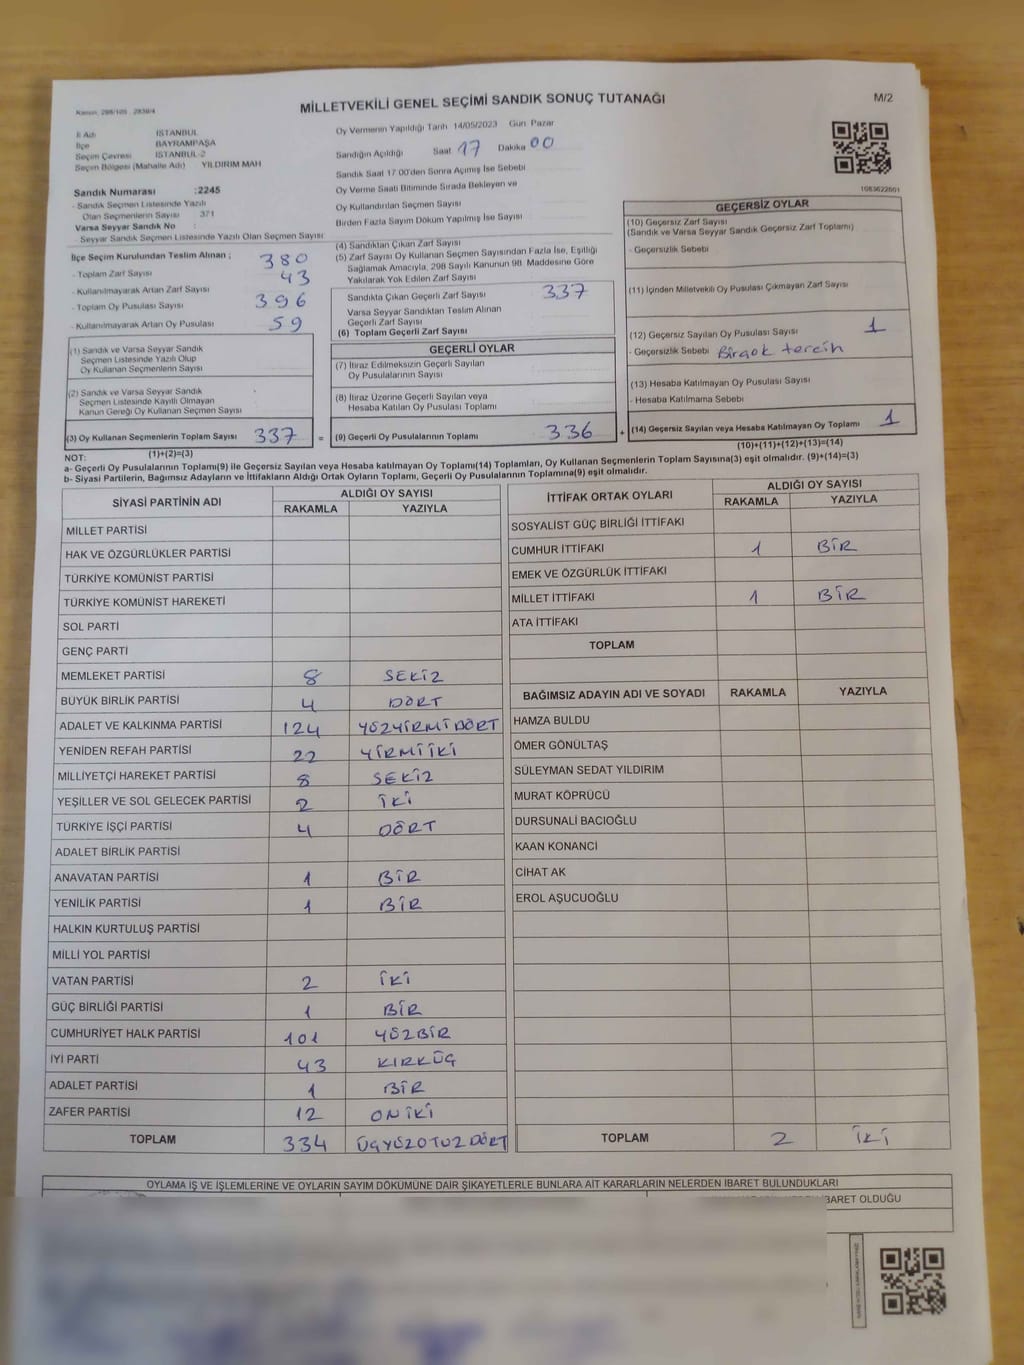 MİLLETVEKİLİ GENEL SEÇİMİ SANDIK SONUÇ TUTANAĞI
M/2
İl Adı : İSTANBUL
İlçe : BAYRAMPAŞA
Seçim Çevresi : İSTANBUL-2
Seçim Bölgesi (Mahalle Adı) : YILDIRIM MAH
Sandık Numarası :2245
- Sandık Seçmen Listesinde Yazılı
Olan Seçmenlerin Sayısı : 371
Varsa Seyyar Sandık No :
- Seyyar Sandık Seçmen Listesinde Yazılı Olan Seçmen Sayısı:
Oy Vermenin Yapıldığı Tarih 14/05/2023 Gün Pazar
Sandığın Açıldığı Saat 17 Dakika 00
Sandık Saat 17:00'den Sonra Açılmış İse Sebebi
Oy Verme Saati Bitiminde Sırada Bekleyen ve
Oy Kullandırılan Seçmen Sayısı
Birden Fazla Sayım Döküm Yapılmış İse Sayısı
1083622801
İlçe Seçim Kurulundan Teslim Alınan ;
- Toplam Zarf Sayısı 380
- Kullanılmayarak Artan Zarf Sayısı 43
- Toplam Oy Pusulası Sayısı 396
- Kullanılmayarak Artan Oy Pusulası 59
(1) Sandık ve Varsa Seyyar Sandık
Seçmen Listesinde Yazılı Olup
Oy Kullanan Seçmenlerin Sayısı
(2) Sandık ve Varsa Seyyar Sandık
Seçmen Listesinde Kayıtlı Olmayan
Kanun Gereği Oy Kullanan Seçmen Sayısı
(3) Oy Kullanan Seçmenlerin Toplam Sayısı 337 =
(1)+(2)=(3)
(4) Sandıktan Çıkan Zarf Sayısı
(5) Zarf Sayısı Oy Kullanan Seçmen Sayısından Fazla İse, Eşitliği
Sağlamak Amacıyla, 298 Sayılı Kanunun 98. Maddesine Göre
Yakılarak Yok Edilen Zarf Sayısı
Sandıkta Çıkan Geçerli Zarf Sayısı 337
Varsa Seyyar Sandıktan Teslim Alınan
Geçerli Zarf Sayısı
(6) Toplam Geçerli Zarf Sayısı
GEÇERLİ OYLAR
(7) İtiraz Edilmeksizin Geçerli Sayılan
Oy Pusulalarının Sayısı
(8) İtiraz Üzerine Geçerli Sayılan veya
Hesaba Katılan Oy Pusulası Toplamı
(9) Geçerli Oy Pusulalarının Toplamı 336 +
GEÇERSİZ OYLAR
(10) Geçersiz Zarf Sayısı
(Sandık ve Varsa Seyyar Sandık Geçersiz Zarf Toplamı)
- Geçersizlik Sebebi
(11) İçinden Milletvekili Oy Pusulası Çıkmayan Zarf Sayısı
(12) Geçersiz Sayılan Oy Pusulası Sayısı 1
- Geçersizlik Sebebi Birçok tercih
(13) Hesaba Katılmayan Oy Pusulası Sayısı
- Hesaba Katılmama Sebebi
(14) Geçersiz Sayılan veya Hesaba Katılmayan Oy Toplamı 1
(10)+(11)+(12)+(13)=(14)
NOT:
a- Geçerli Oy Pusulalarının Toplamı(9) ile Geçersiz Sayılan veya Hesaba katılmayan Oy Toplamı(14) Toplamları, Oy Kullanan Seçmenlerin Toplam Sayısına(3) eşit olmalıdır. (9)+(14)=(3)
b- Siyasi Partilerin, Bağımsız Adayların ve İttifakların Aldığı Ortak Oyların Toplamı, Geçerli Oy Pusulalarının Toplamına(9) eşit olmalıdır.
SİYASİ PARTİNİN ADI ALDIĞI OY SAYISI
RAKAMLA YAZIYLA
MİLLET PARTİSİ
HAK VE ÖZGÜRLÜKLER PARTİSİ
TÜRKİYE KOMÜNİST PARTİSİ
TÜRKİYE KOMÜNİST HAREKETİ
SOL PARTİ
GENÇ PARTİ
MEMLEKET PARTİSİ 8 SEKİZ
BÜYÜK BİRLİK PARTİSİ 4 DÖRT
ADALET VE KALKINMA PARTİSİ 124 YÜZYİRMİDÖRT
YENİDEN REFAH PARTİSİ 22 YİRMİİKİ
MİLLİYETÇİ HAREKET PARTİSİ 8 SEKİZ
YEŞİLLER VE SOL GELECEK PARTİSİ 2 İKİ
TÜRKİYE İŞÇİ PARTİSİ 4 DÖRT
ADALET BİRLİK PARTİSİ
ANAVATAN PARTİSİ 1 BİR
YENİLİK PARTİSİ 1 BİR
HALKIN KURTULUŞ PARTİSİ
MİLLİ YOL PARTİSİ
VATAN PARTİSİ 2 İKİ
GÜÇ BİRLİĞİ PARTİSİ 1 BİR
CUMHURİYET HALK PARTİSİ 101 YÜZBİR
İYİ PARTİ 43 KIRKÜÇ
ADALET PARTİSİ 1 BİR
ZAFER PARTİSİ 12 ONİKİ
TOPLAM 334 ÜÇYÜZOTUZDÖRT
İTTİFAK ORTAK OYLARI ALDIĞI OY SAYISI
RAKAMLA YAZIYLA
SOSYALİST GÜÇ BİRLİĞİ İTTİFAKI
CUMHUR İTTİFAKI 1 BİR
EMEK VE ÖZGÜRLÜK İTTİFAKI
MİLLET İTTİFAKI 1 BİR
ATA İTTİFAKI
TOPLAM
BAĞIMSIZ ADAYIN ADI VE SOYADI RAKAMLA YAZIYLA
HAMZA BULDU
ÖMER GÖNÜLTAŞ
SÜLEYMAN SEDAT YILDIRIM
MURAT KÖPRÜCÜ
DURSUNALİ BACIOĞLU
KAAN KONANCI
CİHAT AK
EROL AŞUCUOĞLU
TOPLAM 2 İKİ
OYLAMA İŞ VE İŞLEMLERİNE VE OYLARIN SAYIM DÖKÜMÜNE DAİR ŞİKAYETLERLE BUNLARA AİT KARARLARIN NELERDEN İBARET BULUNDUKLARI
İBARET OLDUĞU